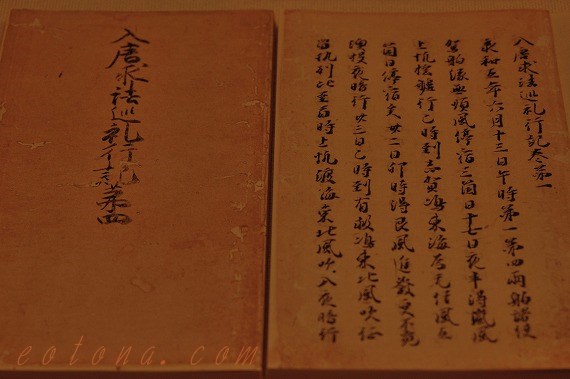 入唐求法巡礼行記卷第一
承和五年六月十三日午時第一第四兩舶諸使
駕舶緣無順風停宿三箇日十七日夜半得嵐風
上帆搖艫行巳時到志賀嶋東海為无信風五
箇日停宿矣廿二日卯時得艮風進發更不覓
澳投夜暗行廿三日巳時到有救嶋東北風吹征
留執別比至酉時上帆渡海東北風吹入夜暗行
入唐求法巡礼行記第四
eotona.com